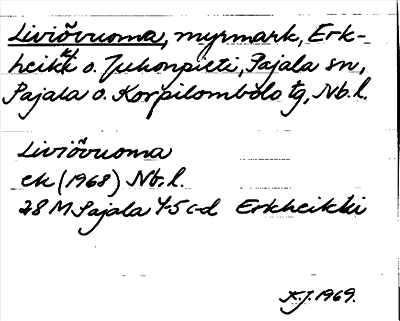 Liviövuoma, myrmark, Erk-
heikki o. Juhonpieti, Pajala sn,
Pajala o. Korpilombolo tg, Nb.l.
Liviövuoma
ek (1968) Nb.l.
28 M Pajala 4-5 c-d Erkheikki
K.J. 1969.